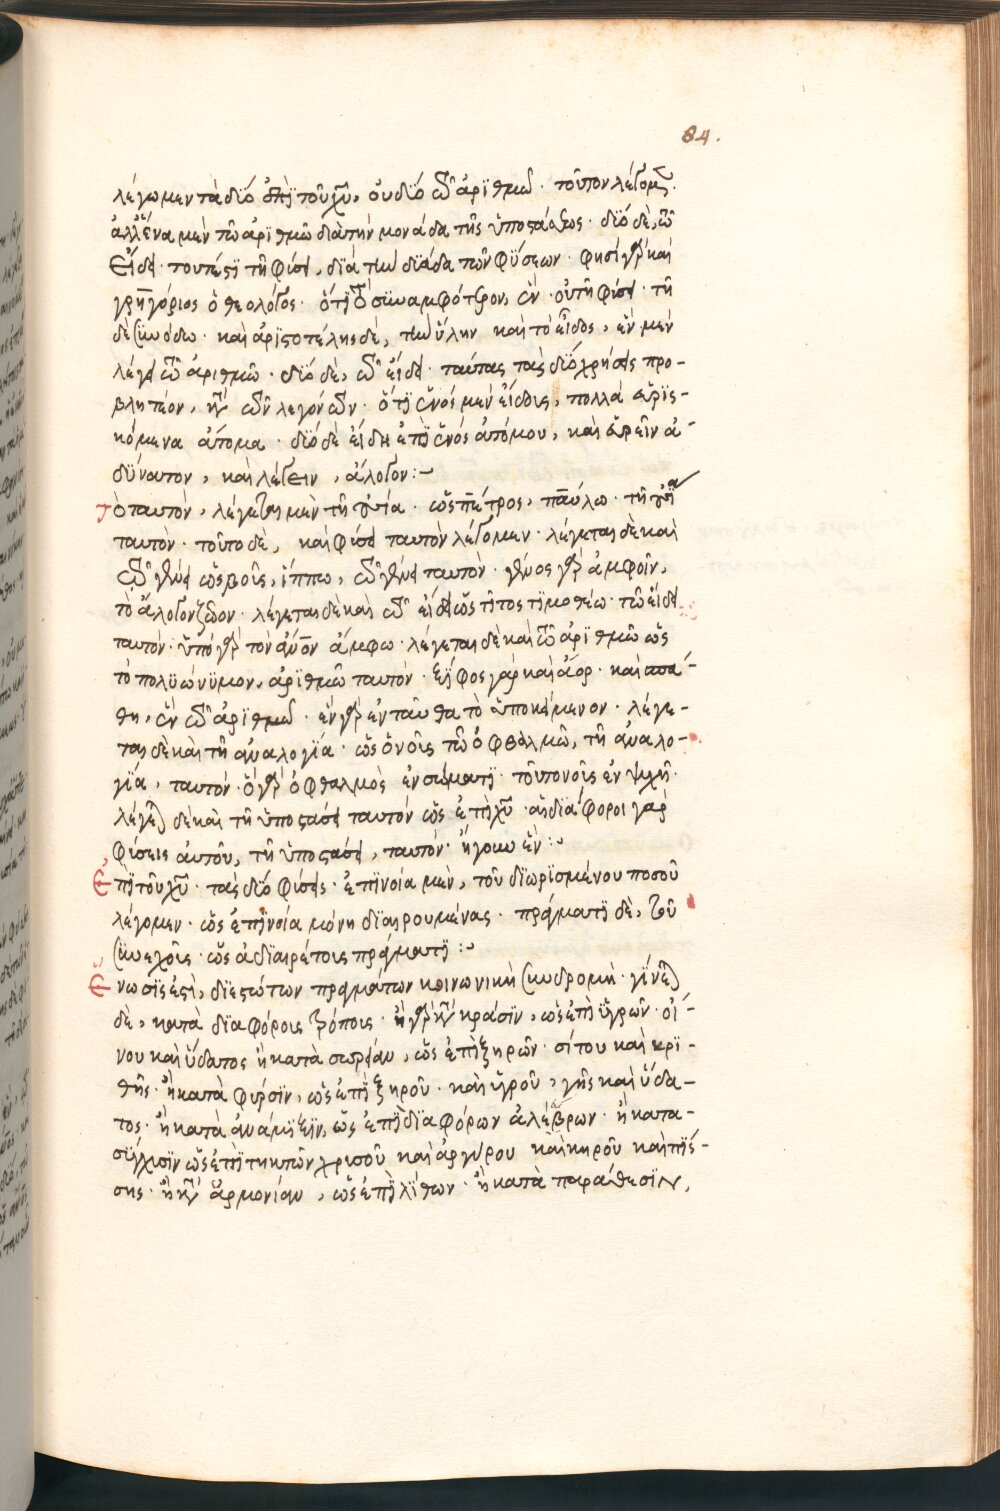 84.
λέγωμεν τὰ δϊό ἐπῒ τοῦ χ̅υ̅, οὐ δϊό τῶ ἀρϊθμῶ · τοῦτον λέγομεν ·
ἀλλ' ἕνα μὲν τῶ ἀρϊθμῶ διὰ τὴν μονάδα τῆς ὑποστάσεως · δϊό δὲ, τῶ
εἴδει · τουτέστϊ τῆ φύσει, δϊὰ τὴν δϊάδα τῶν φϋσεων · φησὶ γὰρ καὶ
γρηγόριος ὁ θεολόγος · ὅτϊ τὸ συναμφότερον, ἓν · οὐ τῆ φύσει · τῆ
δὲ συνόδω · καὶ ἀρϊστοτέλης δὲ, τὴν ὕλην καὶ τὸ εἶδος, ἓν μὲν
λέγει τῶ ἀριθμῶ · δϊό δὲ, τῶ εἴδει · ταύτας τὰς δϊό χρήσεις προ-
βλητέον, κατὰ τῶν λεγόντων · ὅτϊ ἑνός μὲν εἴδους, πολλὰ εὑρϊς-
κόμενα ἄτομα · δϊό δὲ εἴδη ἐπῒ ἑνός ἀτόμου, καὶ εὑρεῖν ἀ-
δϋνατον, καὶ λέγειν, ἄλογον :~
Τὸ ταυτὸν, λέγεται μὲν τῆ οὐσία · ὡς πέτρος, παύλω · τῆ οὐσία
ταυτὸν · τοῦτο δὲ, καὶ φύσει ταυτὸν λέγομεν · λέγεται δὲ καὶ
τῶ γένει ὡς βοῦς, ἵππω, τῶ γένει ταυτὸν · γένος γὰρ ἀμφοῖν,
τὸ ἄλογον ζῶον · λέγεται δὲ καὶ τῶ εἴδει ὡς τῖτος τϊμοθέω · τῶ εἴδει
ταυτὸν · ὑπό γὰρ τὸν ἄνον ἄμφω · λέγεται δὲ καὶ τῶ ἀρϊθμῶ ὡς
τὸ πολϋώνϋμον, ἀρϊθμῶ ταυτὸν · ξϊφος γὰρ καὶ ἄορ · καὶ σπά-
θη, ἓν τῶ ἀρϊθμῶ · ἓν γὰρ ἐνταῦθα τὸ ὑποκείμενον · λέγε-
ται δὲ καὶ τῆ ἀναλογία · ὡς ὁ νοῦς τῶ ὀφθαλμῶ, τῆ ἀναλο-
γία, ταυτὸν · ὃ γὰρ ὀφθαλμὸς ἐν σώματϊ · τοῦτο νοῦς ἐν ψυχῆ ·
λέγεται δὲ καὶ τῆ ὑποστάσει ταυτὸν ὡς ἐπὶ χ̅υ̅ · αἱ δϊάφοροι γὰρ
φύσεις αὐτοῦ, τῆ ὑποστάσει, ταυτὸν · ἤγουν ἓν :~
Ἐπῒ τοῦ χ̅υ̅ · τὰς δϊό φύσεις · ἐπϊνοία μὲν, τοῦ δϊωρϊσμένου ποσοῦ
λέγομεν · ὡς ἐπϊνοία μόνη δϊαιρουμένας · πράγματϊ δὲ, τοῦ
συνεχοῦς · ὡς ἀδϊαιρέτοις πράγματϊ :~
Ἕνωσϊς ἐστὶ, δϊεστώτων πραγμάτων κοινωνικὴ συνδρομὴ · γίνεται
δὲ, κατὰ δϊαφόροις τρόποις · ἢ γὰρ κατὰ κράσϊν, ὡς ἐπὶ ὑγρῶν · οἴ-
νου καὶ ὕδατος ἢ κατὰ σωρείαν, ὡς ἐπὶ ξηρῶν · σίτου καὶ κρϊ-
θῆς · ἢ κατὰ φύρσϊν, ὡς ἐπῒ ξηροῦ · καὶ ὑγροῦ, γῆς καὶ ὕδα-
τος · ἢ κατὰ ἀνάμϊξϊν, ὡς ἐπῒ δϊαφόρων ἀλεύρων · ἢ κατα-
σύγχισϊν ὡς ἐπῒ τηκτῶν χρισοῦ καὶ ἀργύρου καὶ κηροῦ καὶ πϊς-
σης · ἢ κατὰ ἁρμονίαν, ὡς ἐπῒ λίθων · ἢ κατὰ παράθεσϊν,